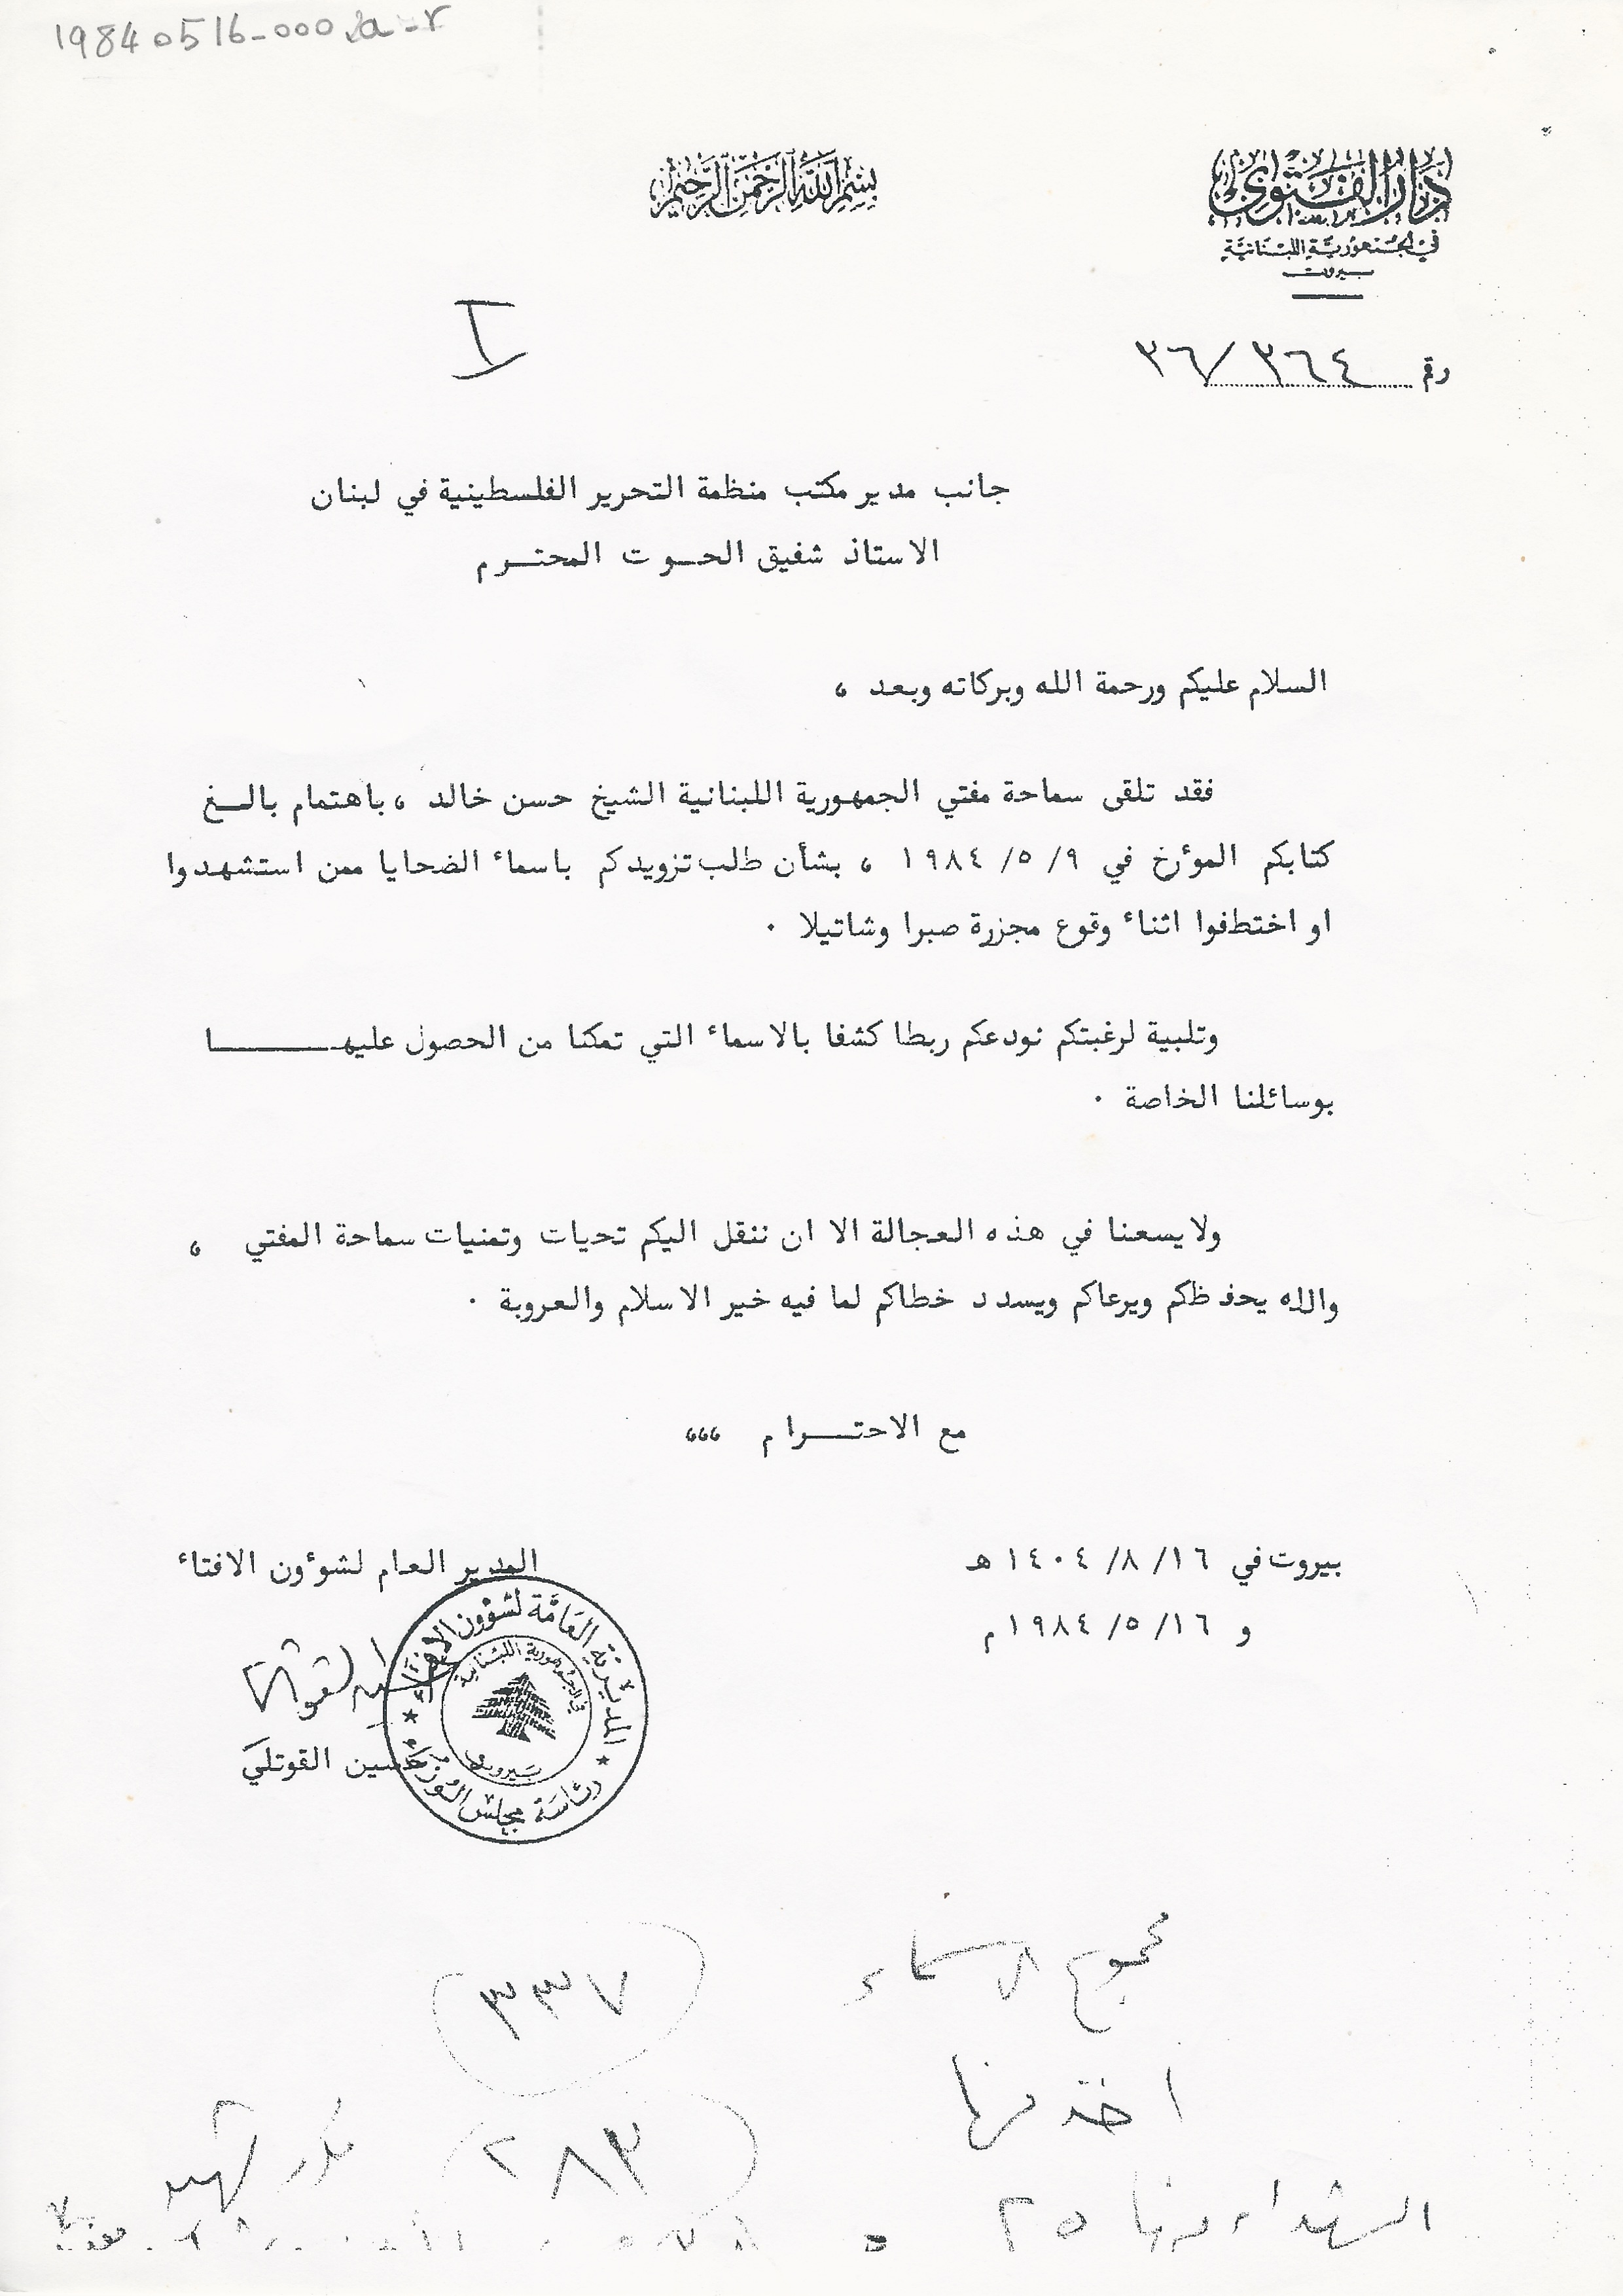 19840516-000
بسم الله الرحمن الرحيم
دار الفتوى
في الجمهورية اللبنانية
بيروت
I
رقم ٣٦٤/٣٦
جانب مدير مكتب منظمة التحرير الفلسطينية في لبنان
الاستاذ شفيق الحوت المحترم
السلام عليكم ورحمة الله وبركاته وبعد ،
فقد تلقى سماحة مفتي الجمهورية اللبنانية الشيخ حسن خالد ، باهتمام بالغ
كتابكم المؤرخ في ٩/ ٥/ ١٩٨٤ ، بشأن طلب تزويدكم باسماء الضحايا ممن استشهدوا
او اختطفوا اثناء وقوع مجزرة صبرا وشاتيلا ٠
وتلبية لرغبتكم نودعكم ربطا كشفا بالاسماء التي تمكنا من الحصول عليها
بوسائلنا الخاصة ٠
ولا يسعنا في هذه العجالة الا ان ننقل اليكم تحيات وتمنيات سماحة المفتي ،
والله يحفظكم ويرعاكم ويسدد خطاكم لما فيه خير الاسلام والعروبة ٠
مع الاحترام ،،،
بيروت في ١٦/ ٨/ ١٤٠٤ هـ
و ١٦/ ٥/ ١٩٨٤ م
المدير العام لشؤون الافتاء
حسين القوتلي
المديرية العامة لشؤون الافتاء
رئاسة مجلس الوزراء
في الجمهورية اللبنانية
بيروت
مجموع الاسماء ٣٣٧
اخذ منها ٢٨٣
الشهداء منها ٢٥